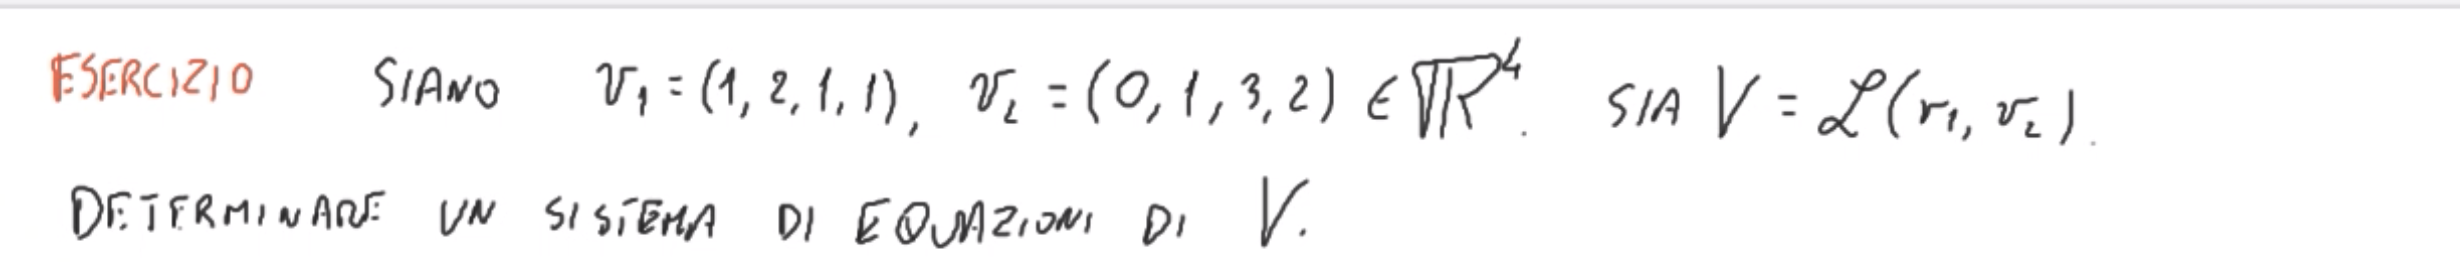 ESERCIZIO SIANO v₁ = (1, 2, 1, 1), v₂ = (0, 1, 3, 2) ∈ ℝ⁴. SIA V = ℒ(v₁, v₂).
DETERMINARE UN SISTEMA DI EQUAZIONI DI V.